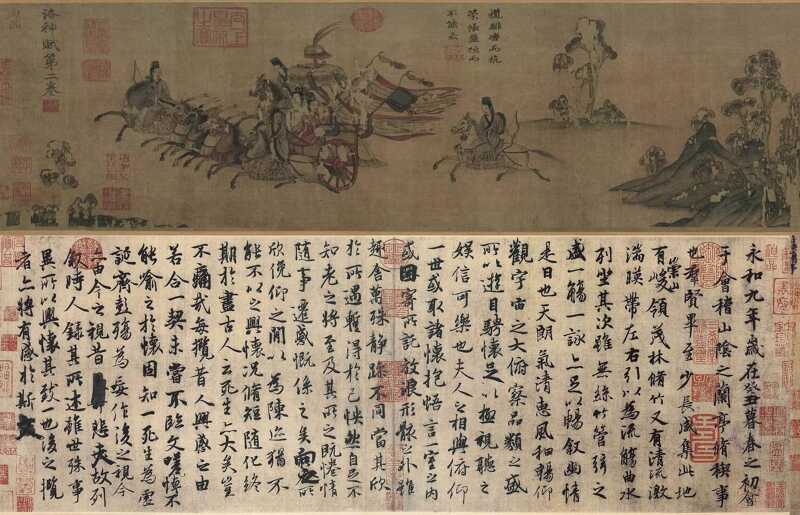 洛神賦第二卷
永和九年歲在癸丑暮春之初會
于會稽山陰之蘭亭脩稧事
也群賢畢至少長咸集此地
有崇山峻領茂林脩竹又有清流激
湍暎帶左右引以為流觴曲水
列坐其次雖無絲竹管弦之
盛一觴一詠亦足以暢敘幽情
是日也天朗氣清惠風和暢仰
觀宇宙之大俯察品類之盛
所以遊目騁懷足以極視聽之
娛信可樂也夫人之相與俯仰
一世或取諸懷抱悟言一室之內
或因寄所託放浪形骸之外雖
趣舍萬殊靜躁不同當其欣
於所遇蹔得於己怏然自足不
知老之將至及其所之既惓情
隨事遷感慨係之矣向之所
欣俛仰之閒以為陳迹猶不
能不以之興懷況脩短隨化終
期於盡古人云死生亦大矣豈
不痛哉每攬昔人興感之由
若合一契未嘗不臨文嗟悼不
能喻之於懷固知一死生為虛
誕齊彭殤為妄作後之視今
亦由今之視昔悲夫故列
敘時人錄其所述雖世殊事
異所以興懷其致一也後之攬
者亦將有感於斯文